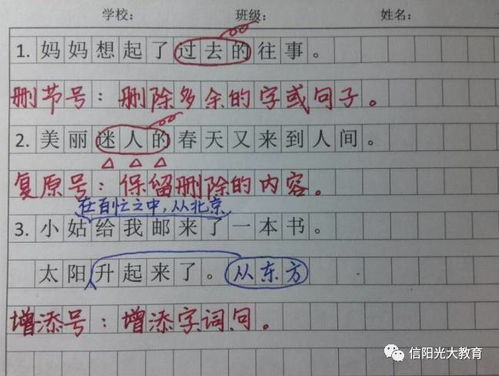 学校： 班级： 姓名：
1. 妈妈想起了过去的往事。
删节号：删除多余的字或句子。
2. 美丽迷人的春天又来到人间。
复原号：保留删除的内容。
在百忙之中,从北京
3. 小姑给我邮来了一本书。
太阳升起来了。从东方
增添号：增添字词句。
信阳光大教育